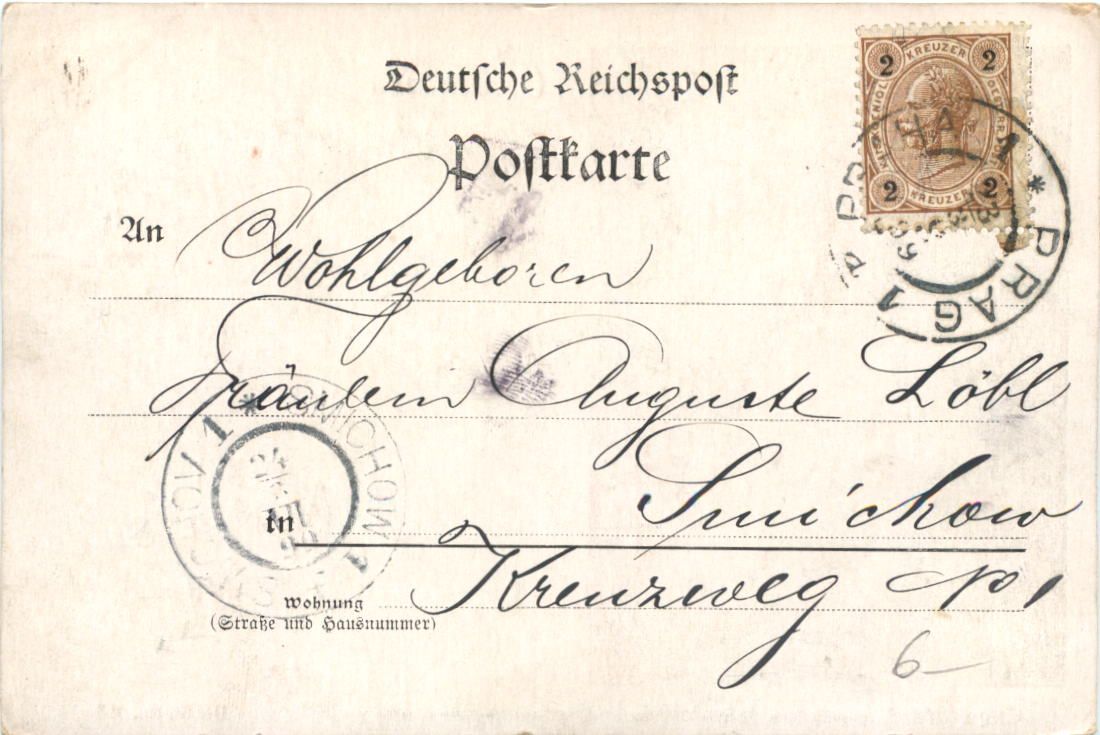 Deutsche Reichspost
Postkarte
2 KREUZER 2
2 KREUZER 2
PRAG 1
An Wohlgeboren
Fräulein Auguste Löbl
SMICHOW 1
in Smichow
Wohnung Kreuzweg No 1
(Straße und Hausnummer)
6-